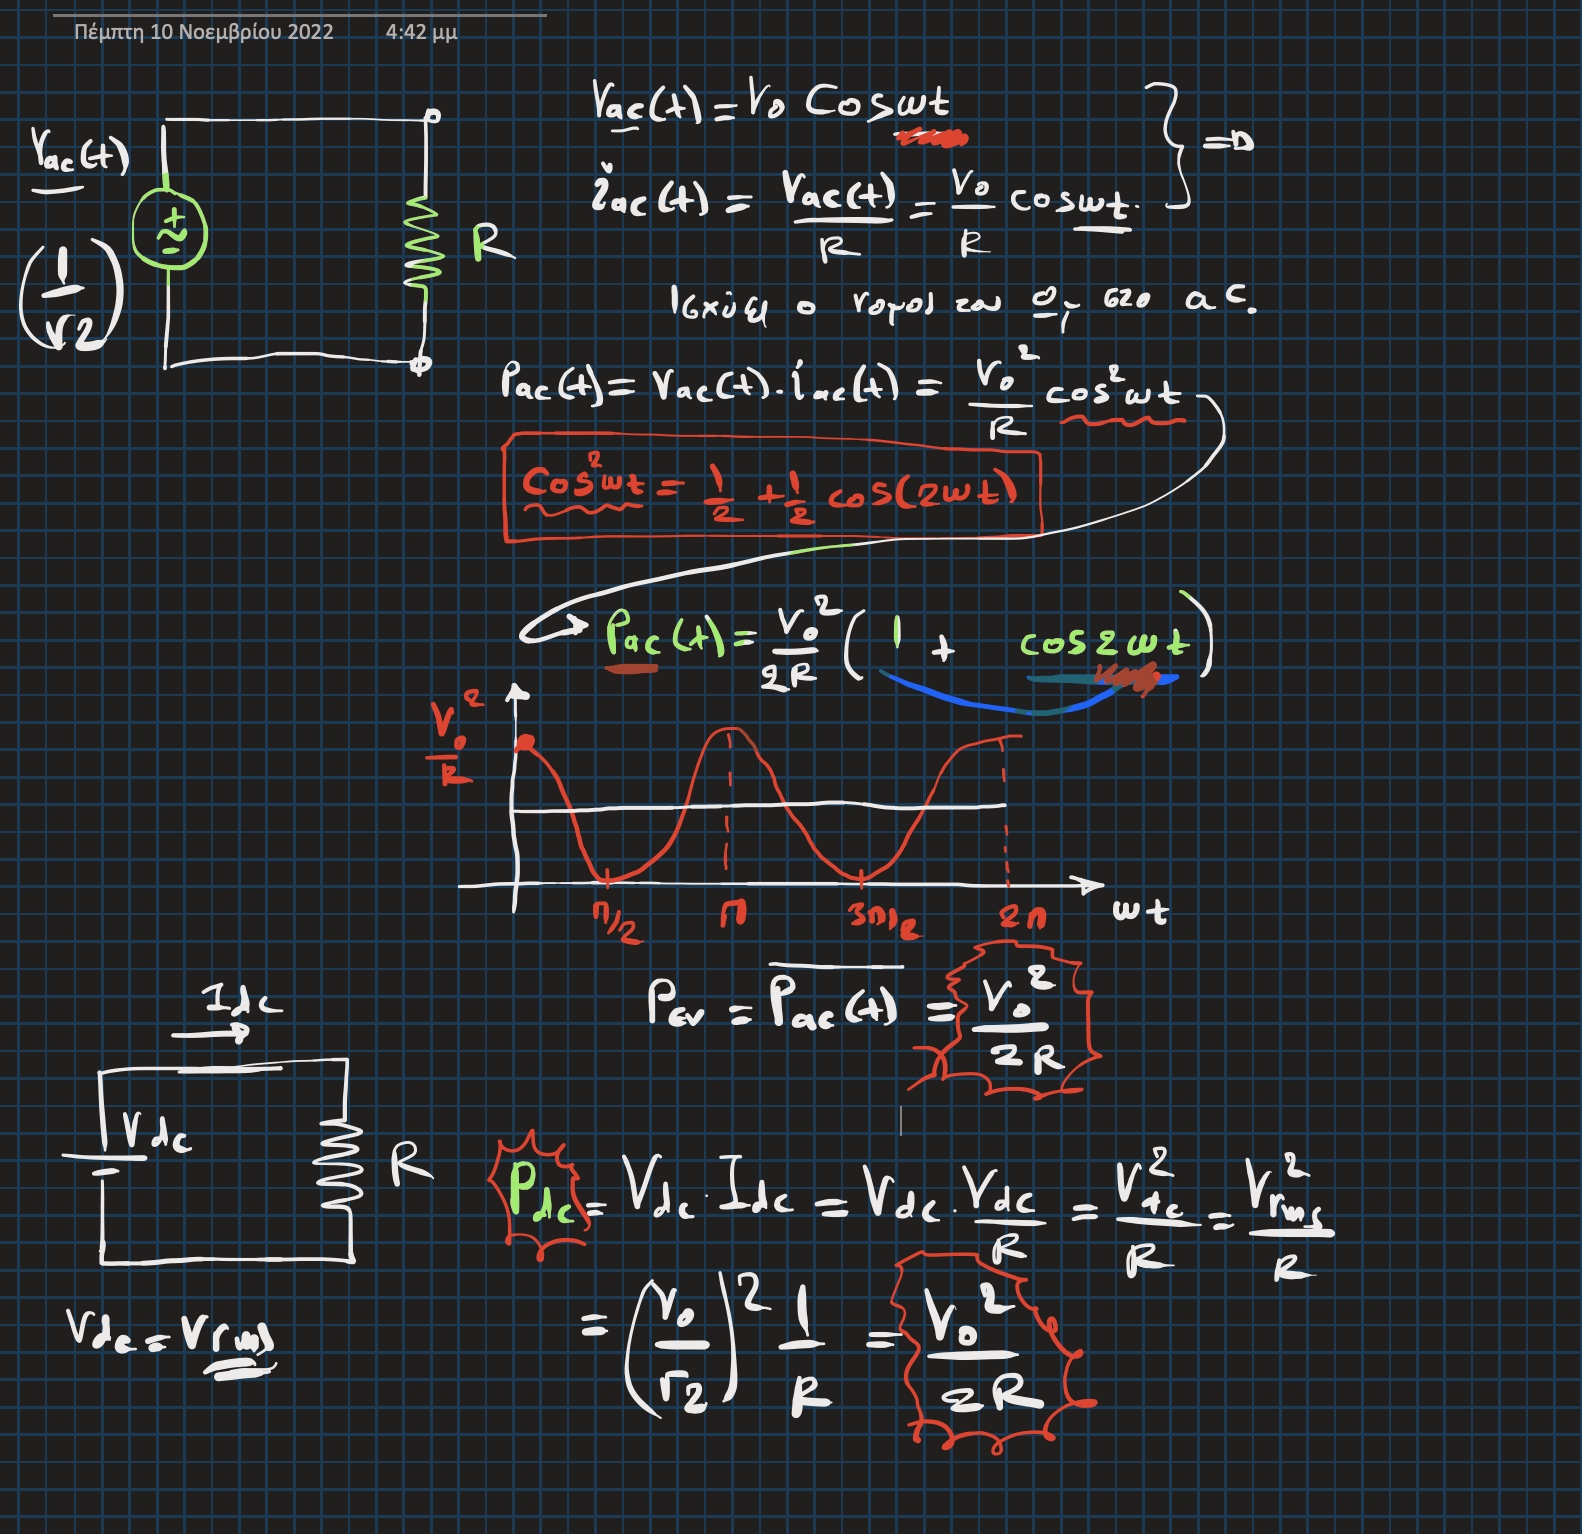 Πέμπτη 10 Νοεμβρίου 2022 4:42 μμ
Vac(t)
(1/√2)
R
Vac(t) = V₀ cosωt
iac(t) = Vac(t)/R = V₀/R cosωt. } =>
Ισχύει ο νομος του Ω στο ac.
Pac(t) = Vac(t) · iac(t) = V₀²/R cos²ωt
cos²ωt = 1/2 + 1/2 cos(2ωt)
Pac(t) = V₀²/2R (1 + cos2ωt)
V₀²/R
π/2 π 3π/2 2π
ωt
Pav = Pac(t) = V₀²/2R
Idc
Vdc
R
Pdc = Vdc · Idc = Vdc · Vdc/R = Vdc²/R = Vrms²/R
= (V₀/√2)² 1/R = V₀²/2R
Vdc = Vrms